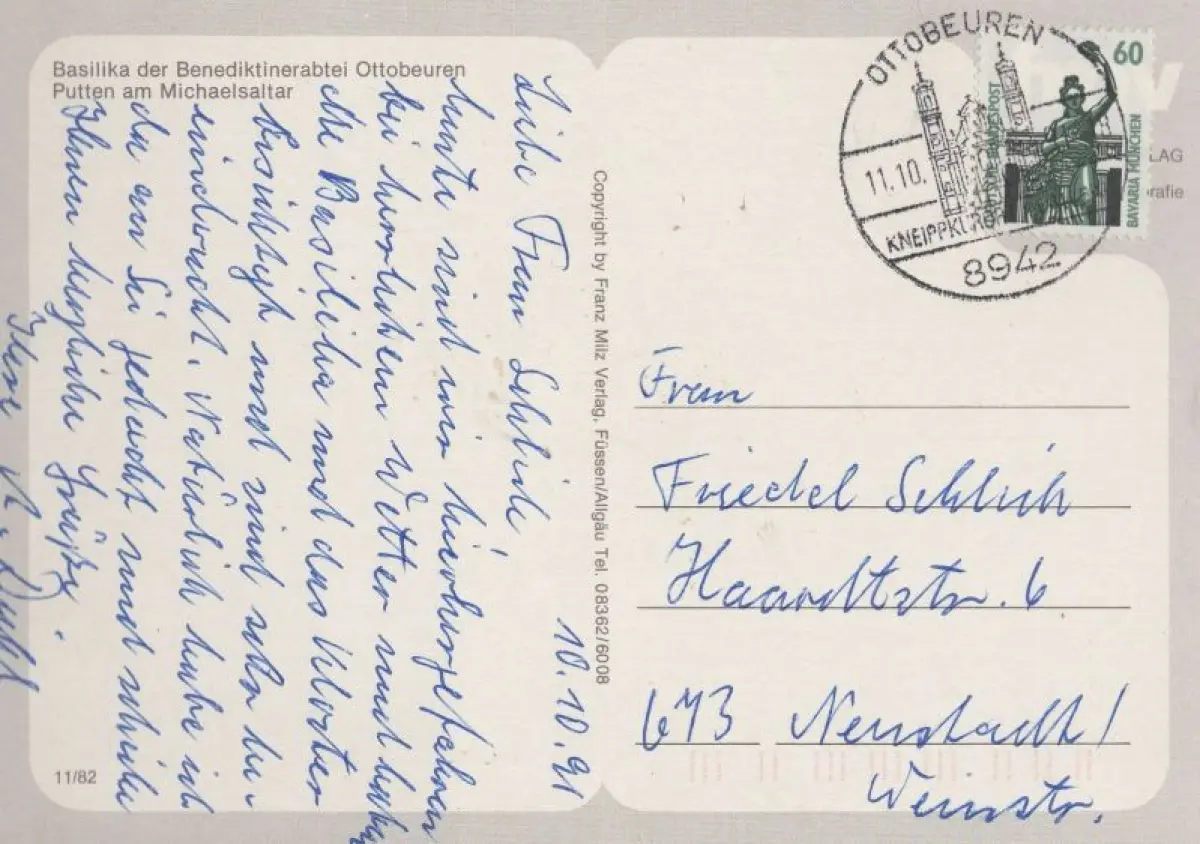 Basilika der Benediktinerabtei Ottobeuren
Putten am Michaelsaltar
10.10.91
Liebe Frau Schlich,
heute sind wir hierhergefahren
bei herrlichem Wetter und haben
die Basilika und das Kloster
besichtigt und sind sehr be-
eindruckt. Natürlich habe ich
da an Sie gedacht und schicke
Ihnen herzliche Grüße.
Ihre
11/82
Copyright by Franz Milz Verlag, Füssen/Allgäu Tel. 08362/6008
OTTOBEUREN
11.10.
8942
60
DEUTSCHE BUNDESPOST
BAVARIA MÜNCHEN
Frau
Friedel Schlich
Haardtstr. 6
673 Neustadt/
Weinstr.